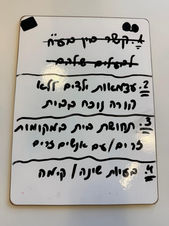 1. קשר בין בע״ח
לבעלים שלהם
2. עצמאות ילדים ללא
הורה נוכח בבית
3. תחושת בית במקומות
זרים/עם אנשים זרים
4. בעיות שינה/קימה